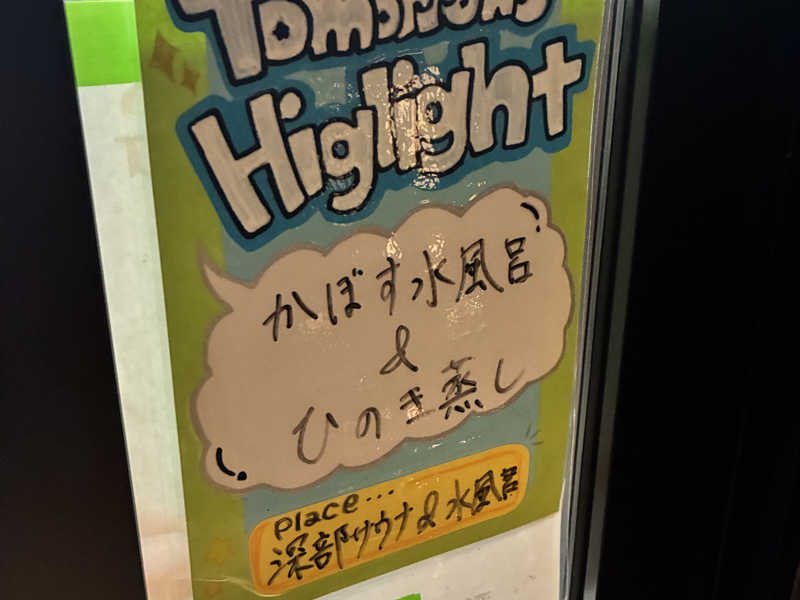 Tomorrows
Higlight
かぼす水風呂
&
ひのき蒸し
Place...
深部サウナ&水風呂